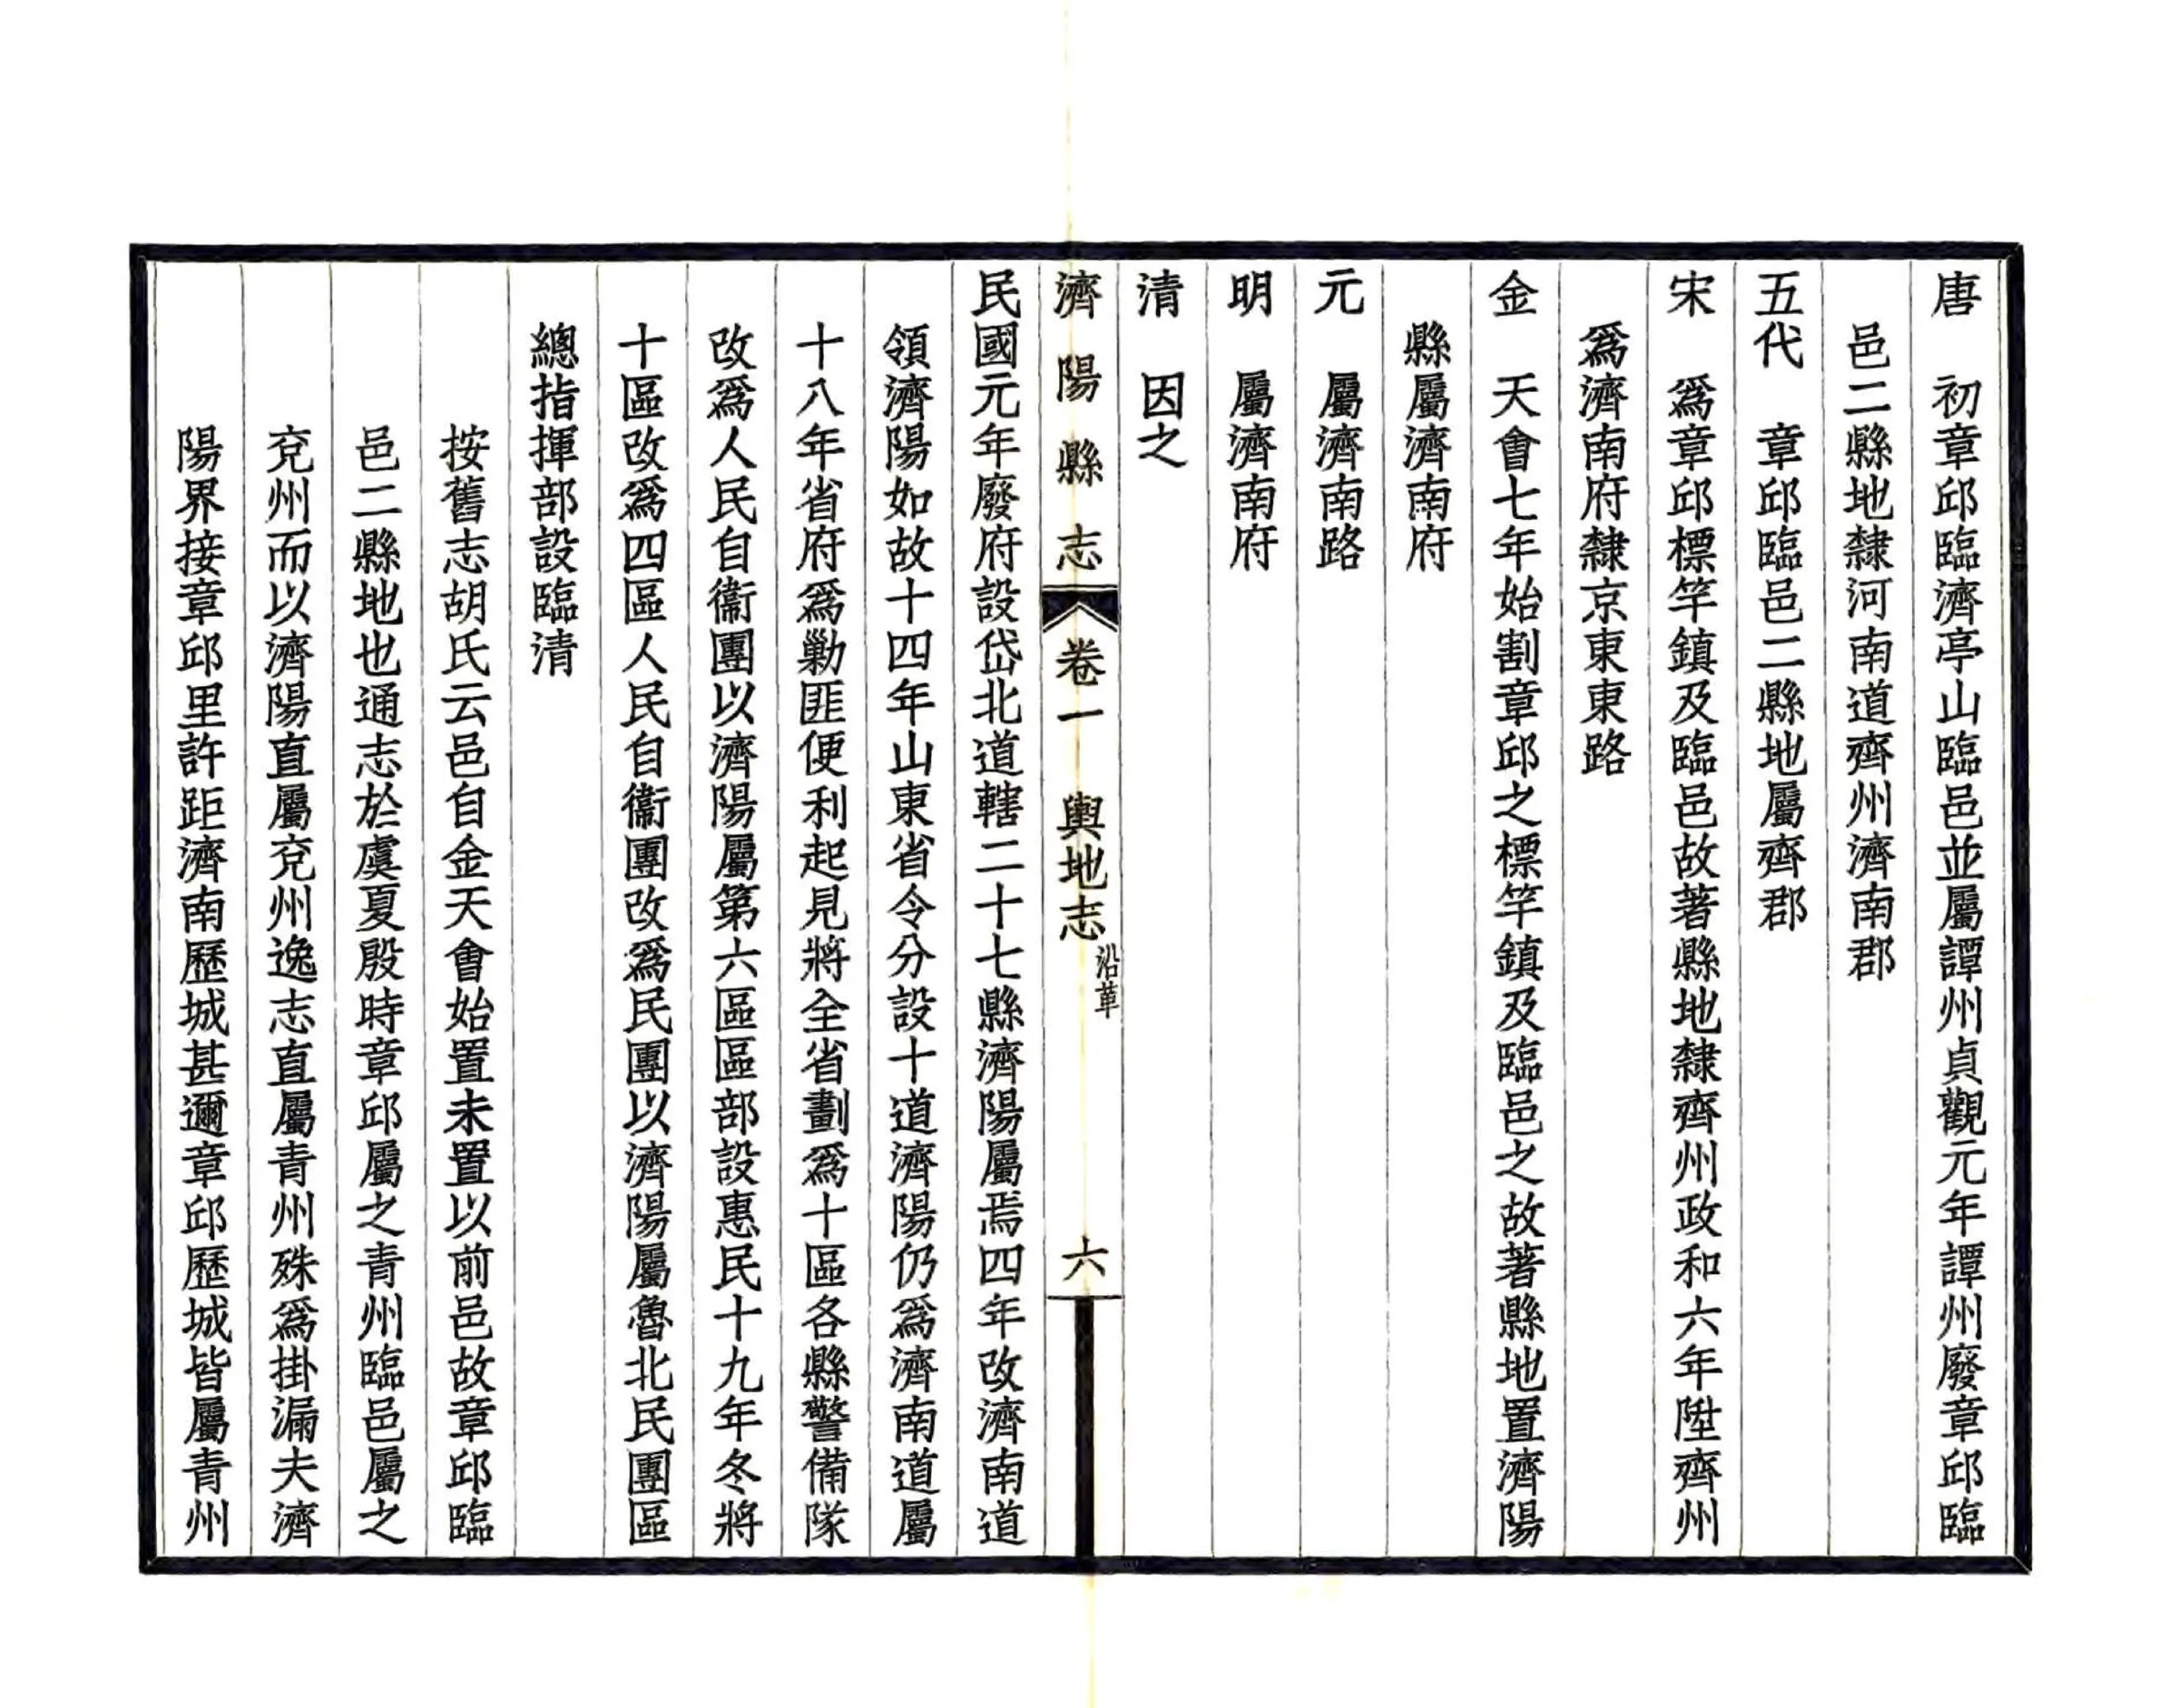 唐　初章邱臨濟亭山臨邑並屬譚州貞觀元年譚州廢章邱臨
邑二縣地隸河南道齊州濟南郡
五代　章邱臨邑二縣地屬齊郡
宋　爲章邱標竿鎮及臨邑故著縣地隸齊州政和六年陞齊州
爲濟南府隸京東東路
金　天會七年始割章邱之標竿鎮及臨邑之故著縣地置濟陽
縣屬濟南府
元　屬濟南路
明　屬濟南府
清　因之
濟陽縣志　卷一　輿地志　沿革　六
民國元年廢府設岱北道轄二十七縣濟陽屬焉四年改濟南道
領濟陽如故十四年山東省令分設十道濟陽仍爲濟南道屬
十八年省府爲勦匪便利起見將全省劃爲十區各縣警備隊
改爲人民自衞團以濟陽屬第六區區部設惠民十九年冬將
十區改爲四區人民自衞團改爲民團以濟陽屬魯北民團區
總指揮部設臨清
按舊志胡氏云邑自金天會始置未置以前邑故章邱臨
邑二縣地也通志於虞夏殷時章邱屬之青州臨邑屬之
兗州而以濟陽直屬兗州逸志直屬青州殊爲掛漏夫濟
陽界接章邱里許距濟南歷城甚邇章邱歷城皆屬青州